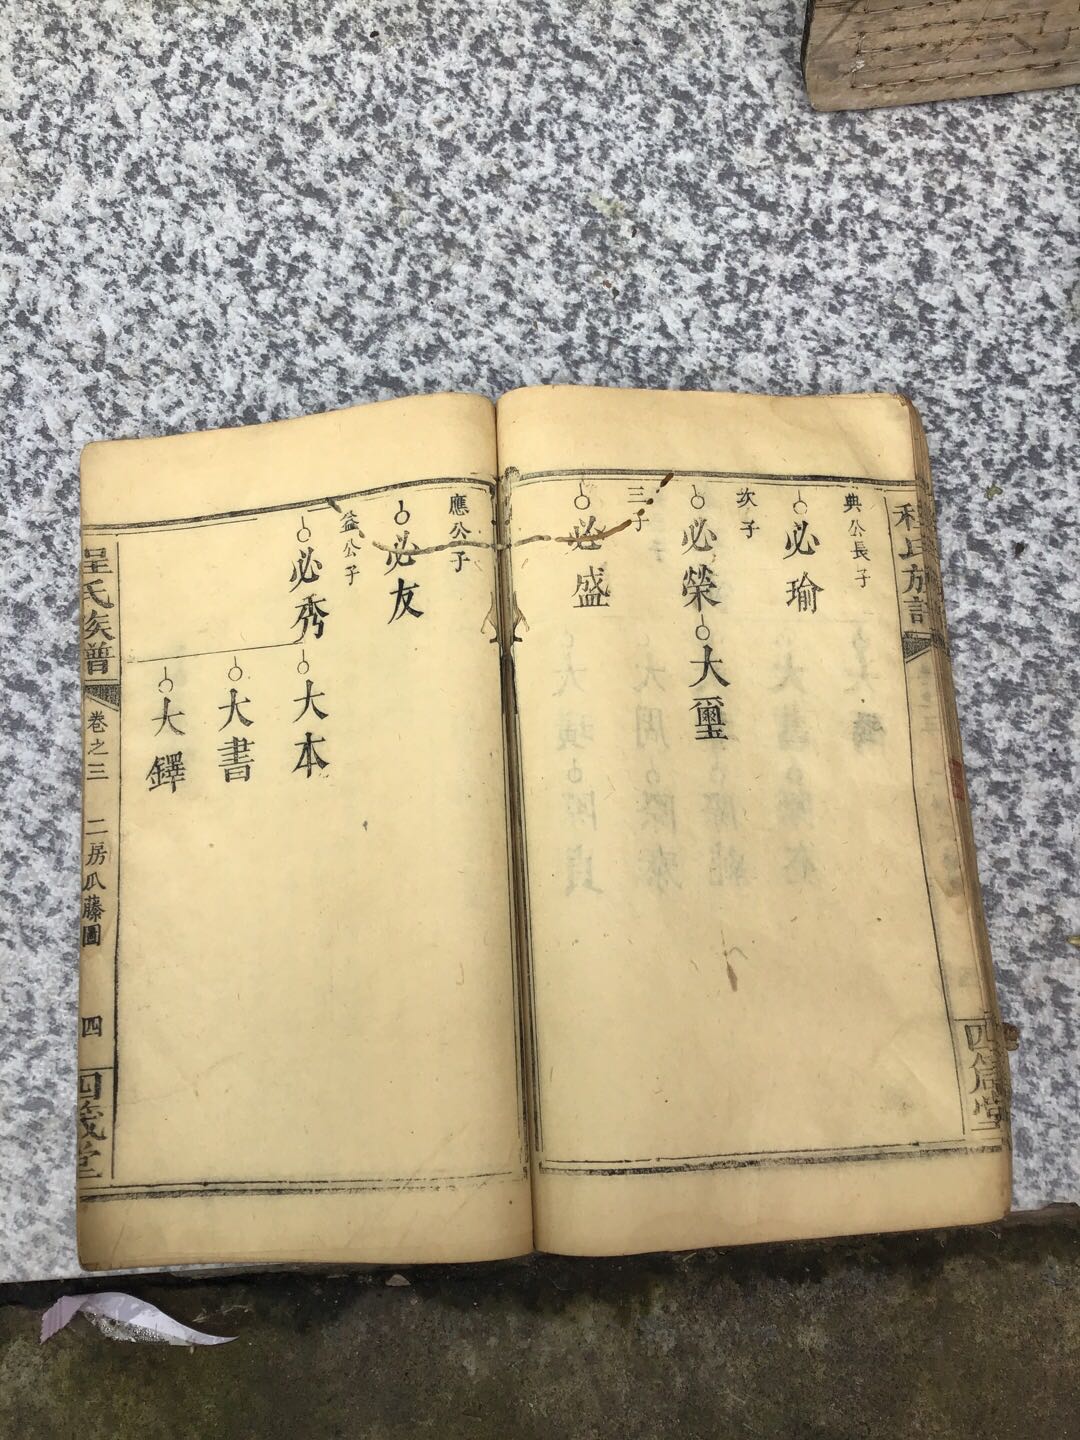 典公長子
必瑜
次子
必榮
大璽
三子
必盛
四箴堂
應公子
必友
益公子
必秀
大本
大書
大鐸
程氏族譜
卷之三
二房瓜藤圖
四
四箴堂